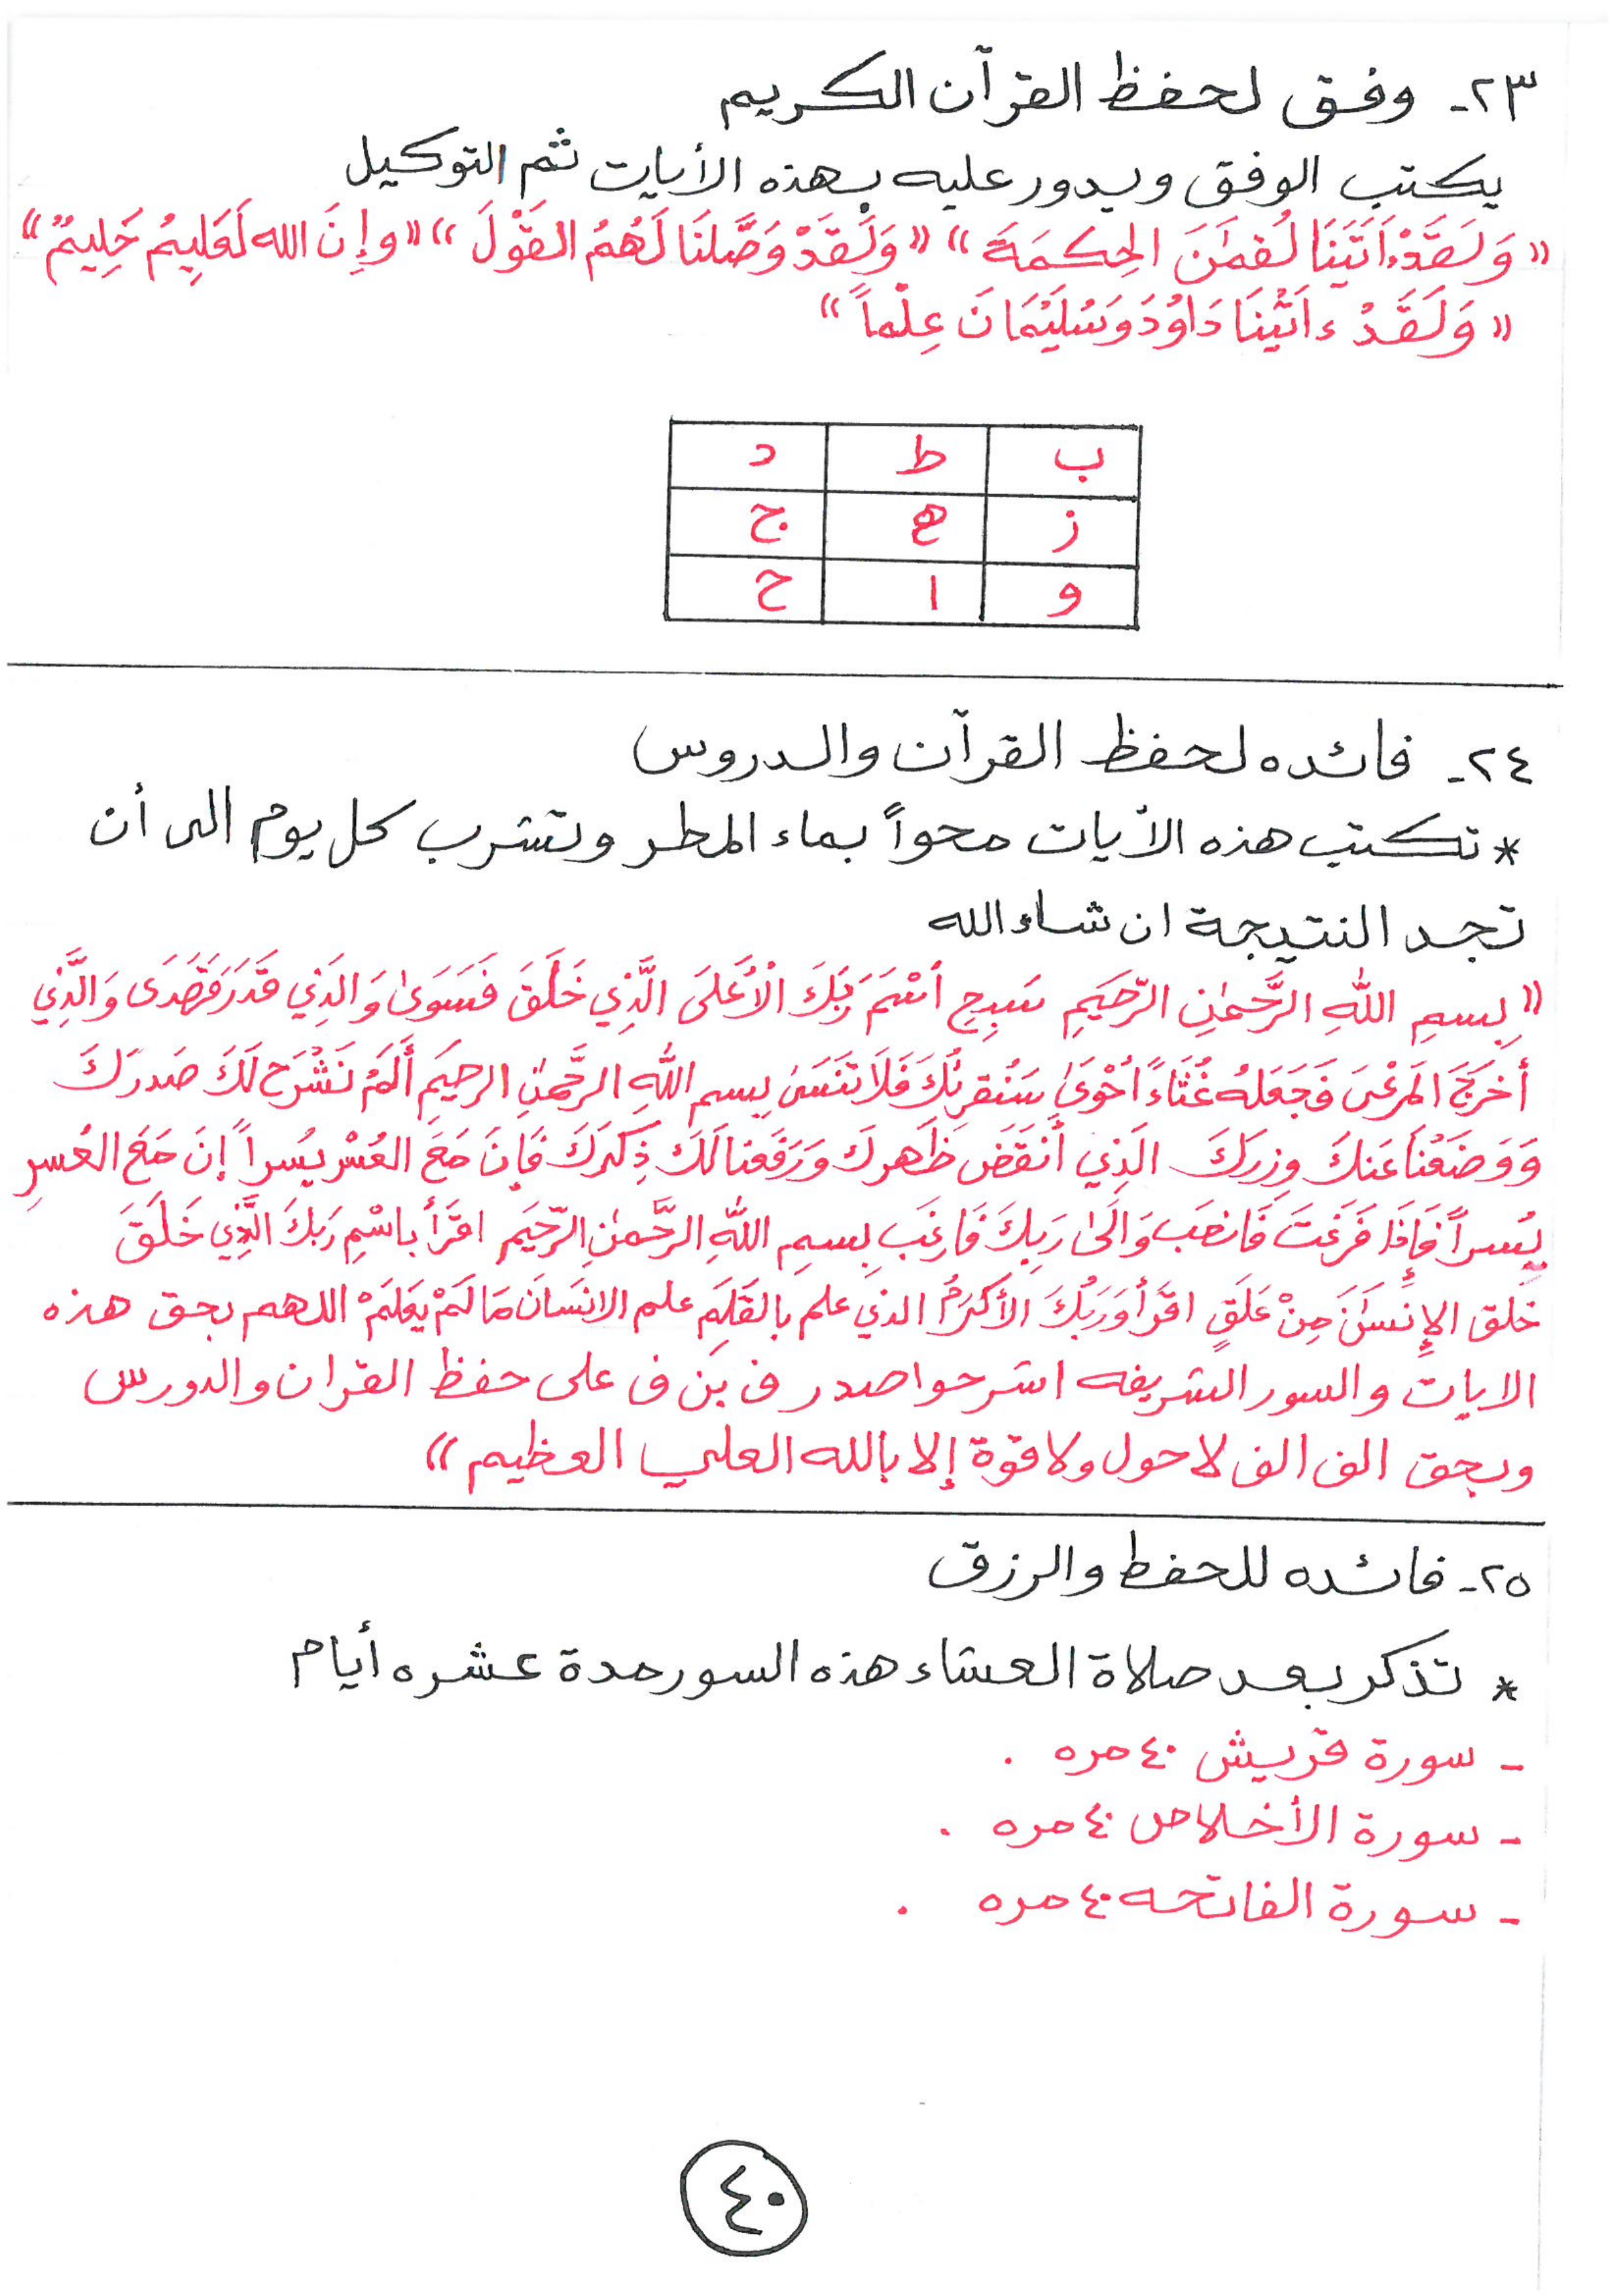 ٢٣- وفق لحفظ القرآن الكريم
يكتب الوفق ويدور عليه بهذه الأيات ثم التوكيل
« وَلَقَدْ ءَاتَيْنَا لُقمَٰنَ الحِكمَةَ » « وَلَقَدْ وَصَّلنَا لَهُمُ القَوْلَ » « وإِنَ الله لَعَلِيمُ حَلِيمٌ »
« وَلَقَدْ ءاتَيْنَا دَاوُدَ وَسُلَيْمَانَ عِلْماً »
ب ط د
ز ه ج
و ا ح
٢٤- فائده لحفظ القرآن والدروس
* تكتب هذه الآيات محواً بماء المطر وتشرب كل يوم الى أن
تجد النتيجة ان شاء الله
« بِسمِ اللَّهِ الرَّحمٰنِ الرّحَيمِ سَبِحِ اسْمَ رَبِكَ الْأَعَلىَ الَّذِي خَلَقَ فَسَوىٰ وَالذِي قَدَرَ فَهَدَى وَالَّذِي
أَخرَجَ المَرعْىَ فَجَعَلهُ غُثَاءً أحْوىَٰ سَنُقرِئكَ فَلَا تَنسَىٰ بِسمِ اللَّهِ الرحَّمٰنِ الرحيمِ أَلَمْ نَشْرَح لَكَ صَدرَكَ
وَوَضَعْنَا عَنكَ وِزرَكَ الَذِي أَنقَضَ ظَهركَ وَرَفَعنا لَكَ ذِكرَكَ فَإِنَ مَعَ العُسْرِ يُسراً إنَ مَعَ العُسرِ
يُسراً فَإِذَا فَرَغتَ فَانصَب وَالَىٰ رَبِكَ فَارغَب بِسمِ اللَّهِ الرَّحمٰنِ الرّحَيمِ اقرَأ باسْمِ رَبكَ الَّذِي خَلَقَ
خَلق الإِنسَٰنَ مِنْ عَلَقٍ اقرَأ وَرَبُكَ الأَكرَمُ الذي علم بِالقَلَمِ علم الانسَانَ مَا لَمْ يَعلَمْ اللهم بحق هذه
الايات والسور الشريفه اشرحوا صدر ف بن ف على حفظ القران والدورس
وبحق الف الف لا حول ولا قوة إلا بالله العلي العظيم »
٢٥- فائده للحفظ والرزق
* تذكر بعد صلاة العشاء هذه السور مدة عشره أيام
- سورة قريش ٤٠ مره .
- سورة الأخلاص ٤٠ مره .
- سورة الفاتحه ٤٠ مره .
٤٠